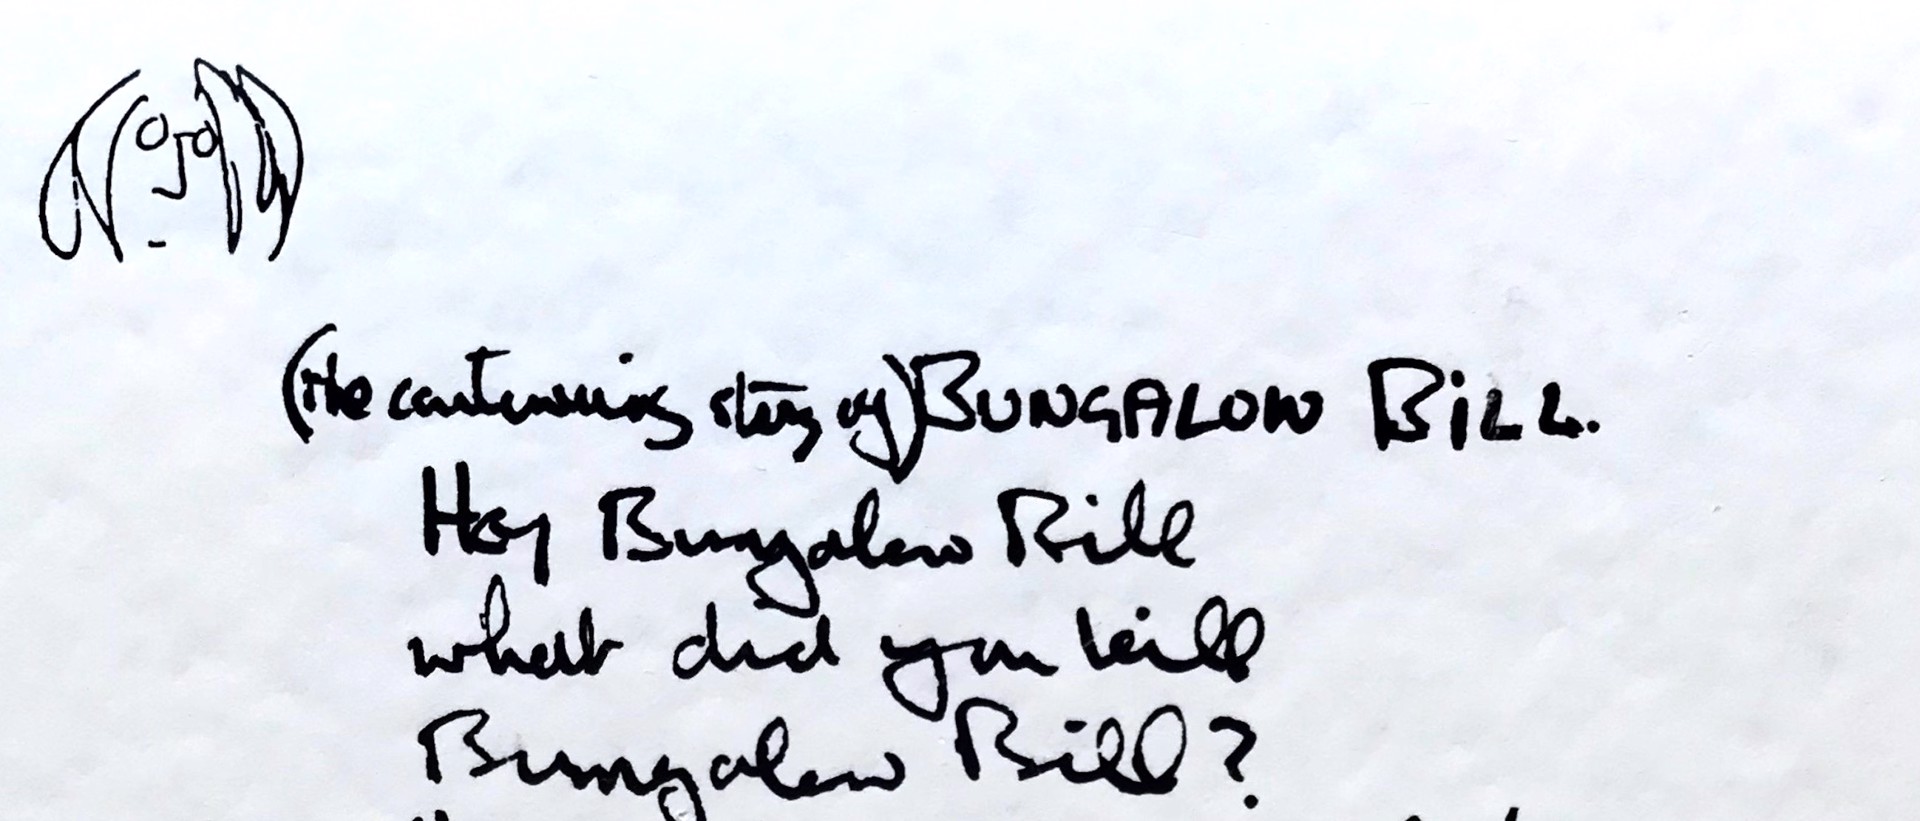 (The continuing story of) BUNGALOW BiLL.
Hey Bungalow Bill
what did you kill
Bungalow Bill?